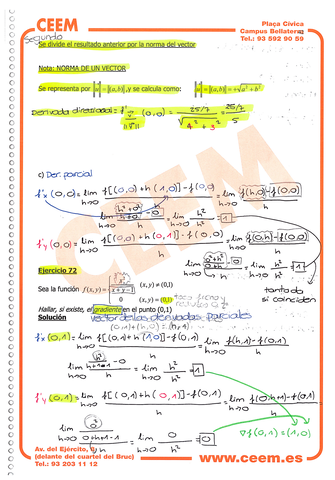 CEEM
Plaça Cívica
Campus Bellaterra
Tel.: 93 592 90 59
Segundo
Se divide el resultado anterior por la norma del vector
Nota: NORMA DE UN VECTOR
Se representa por ‖u‖ = ‖(a,b)‖, y se calcula como: ‖u‖ = ‖(a,b)‖ = +√a² + b².
Derivada direccional = f'v/‖v‖ (0,0) = 25/7 / √4² + 3² = 25/7 / 5
c) Der. parcial
f'x (0,0) = lim h→0 f[(0,0)+h(1,0)] - f(0,0) / h = lim h→0 f(h,0) - f(0,0) / h
lim h→0 h²/h² = 1
f'y (0,0) = lim h→0 f[(0,0)+h(0,1)] - f(0,0) / h = lim h→0 f(0,h) - f(0,0) / h
Ejercicio 72
Sea la función f(x,y) = x² / x+y-1 (x,y) ≠ (0,1)
0 (x,y) = (0,1)
tanto da si coinciden
Hallar, si existe, el gradiente en el punto (0,1)
Solución vector de las derivadas parciales
(0,1)+(h,0) = (h,1)
f'x (0,1) = lim h→0 f[(0,1)+h(1,0)] - f(0,1) / h = lim h→0 f(h,1) - f(0,1) / h
lim h→0 h²/h+1-1 - 0 / h = lim h→0 h²/h² = 1
f'y (0,1) = lim h→0 f[(0,1)+h(0,1)] - f(0,1) / h = lim h→0 f(0,h+1) - f(0,1) / h
lim h→0 0/0+h+1-1 / h = lim h→0 0/h = 0
∇f(0,1) = (1,0)
Av. del Ejército,
(delante del cuartel del Bruc)
Tel.: 93 203 11 12
www.ceem.es